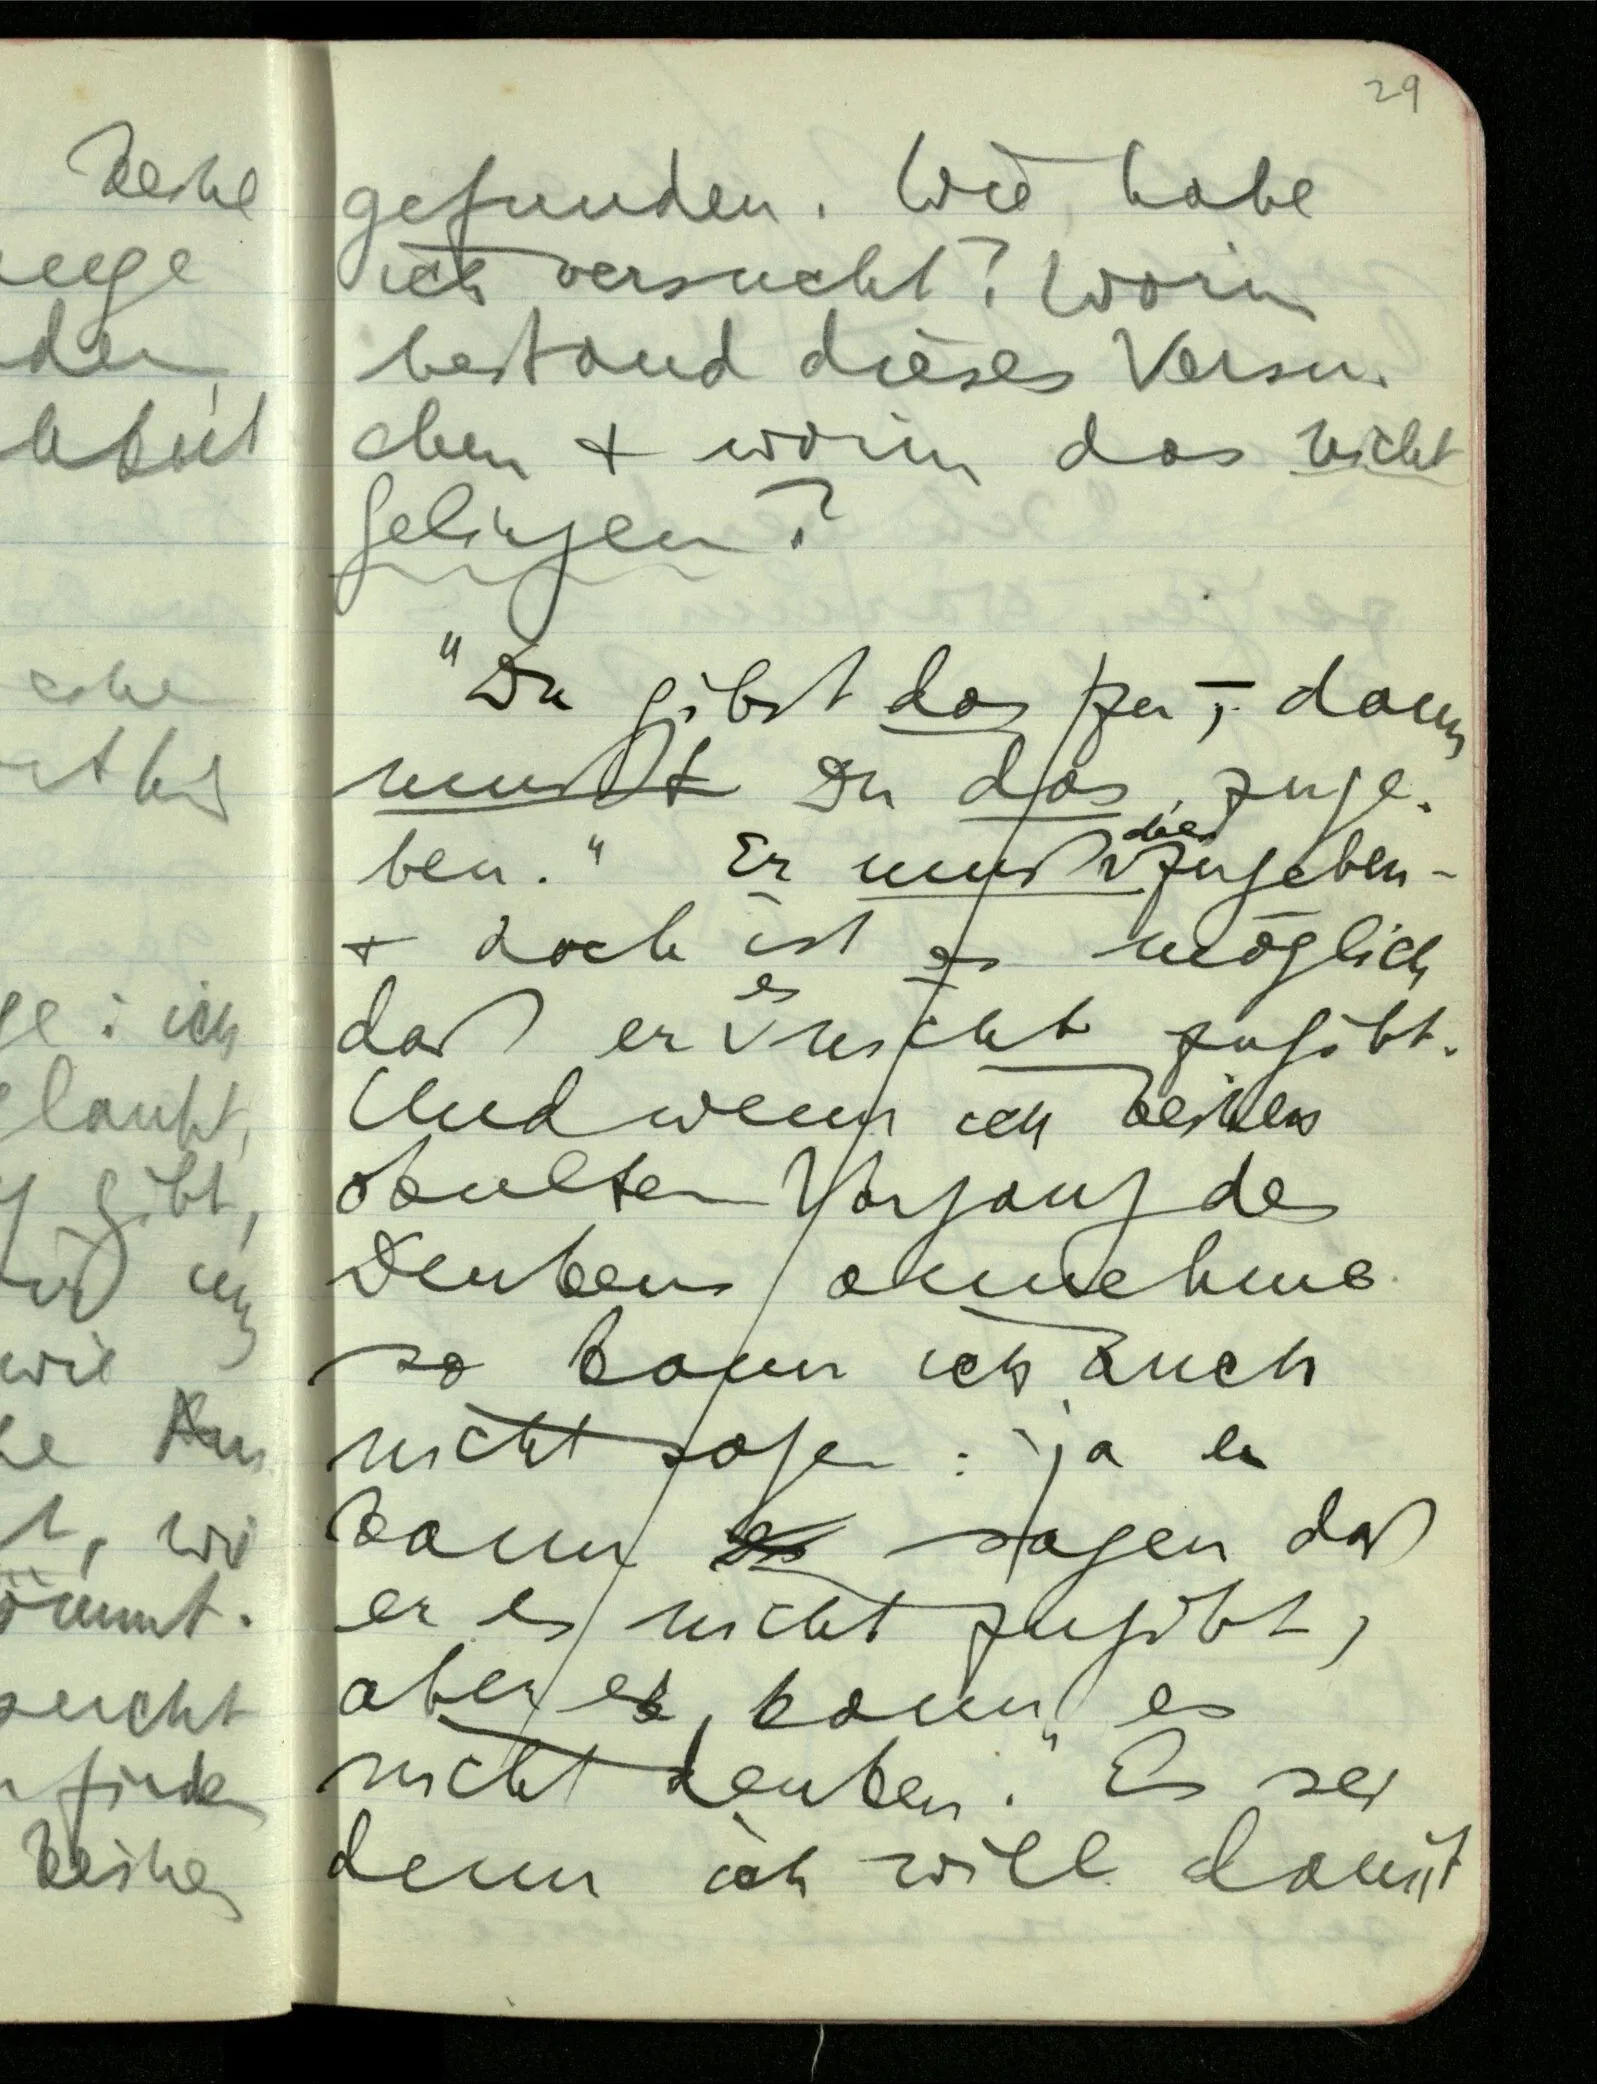 29
keine
gefunden. Wie, habe
ich versucht? Worin
bestand dieses Versu-
chen & worin das nicht
gelingen?
"Du gibst das zu, – dann
mußt Du das zuge-
ben." Er muß dies zugeben –
& doch ist es möglich
daß er es nicht zugibt.
Und wenn ich keinen
okulten Vorgang des
Denkens annehme
so kann ich auch
nicht sagen: "ja er
kann sagen daß
er es nicht zugibt,
aber er kann es
nicht denken." Es sei
denn ich will damit
den
ge: ich
glaubt,
gibt,
wie
t, wie
kömmt.
finden
keinen